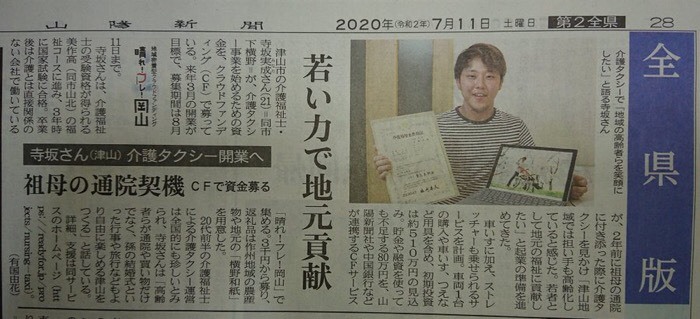 山陽新聞
2020年(令和2年)7月11日 土曜日
第2全県
28
全県版
介護タクシーで「地域の高齢者らを笑顔に
したい」と語る寺坂さん
若い力で地元貢献
寺坂さん(津山)介護タクシー開業へ
祖母の通院契機 CFで資金募る
津山市の介護福祉士・
寺坂実成さん(21)=同市
下横野=が、介護タクシ
ー事業を始めるための資
金を、クラウドファンデ
ィング(CF)で募って
いる。来年3月の開業が
目標で、募集期間は8月
地域密着型クラウドファンディング
晴れ!フレ!岡山
11日まで。
寺坂さんは、介護福祉
士の受験資格が得られる
美作高(同市山北)の福
祉コースに進み、3年時
に国家試験に合格。卒業
後は介護とは直接関係の
ない会社で働いている
が、2年前に祖母の通院
に付き添った際に介護タ
クシーを見かけ「津山地
域では担い手も高齢化し
ていると感じた。若者と
して地元の福祉に貢献し
たい」と起業の準備を進
めてきた。
車いすに加え、ストレ
ッチャーも乗せられるサ
ービスを計画。車両1台
の購入や車いす、つえな
ど用具を含め、初期投資
は約510万円の見込
み。貯金や融資を使って
も不足する80万円を、山
陽新聞社や中国銀行など
が連携するCFサービス
「晴れ!フレー!岡山」で
集める。3千円から募り、
返礼品は作州地域の農産
物や地元の「横野和紙」
を用意した。
20代前半の介護福祉士
による介護タクシー運営
は全国的にも珍しいとみ
られ、寺坂さんは「高齢
者らが通院や買い物だけ
でなく、孫の結婚式とい
った行事や旅行などもよ
り自由に楽しめる津山を
つくる」と話している。
詳細、支援は同サービ
スのホームページ(htt
ps://readyfor.jp/pro
jects/nursingtaxi)
(有国由花)